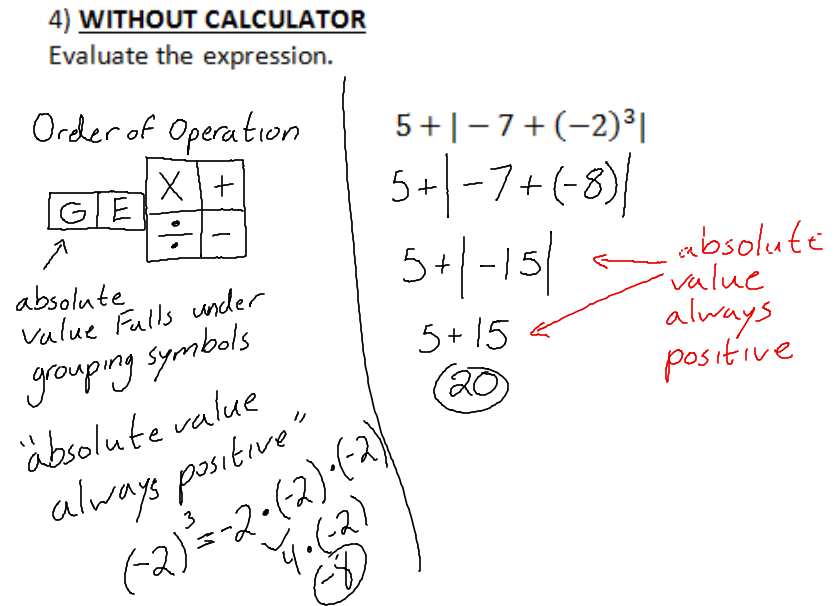 4) WITHOUT CALCULATOR
Evaluate the expression.
Order of Operation
G E X + ÷ −
absolute
value Falls under
grouping symbols
"absolute value
always positive"
(-2)³ = -2 · (-2) · (-2)
4 · (-2)
-8
5 + | − 7 + (−2)³|
5+|-7+(-8)|
5+|-15|
5+15
20
absolute
value
always
positive